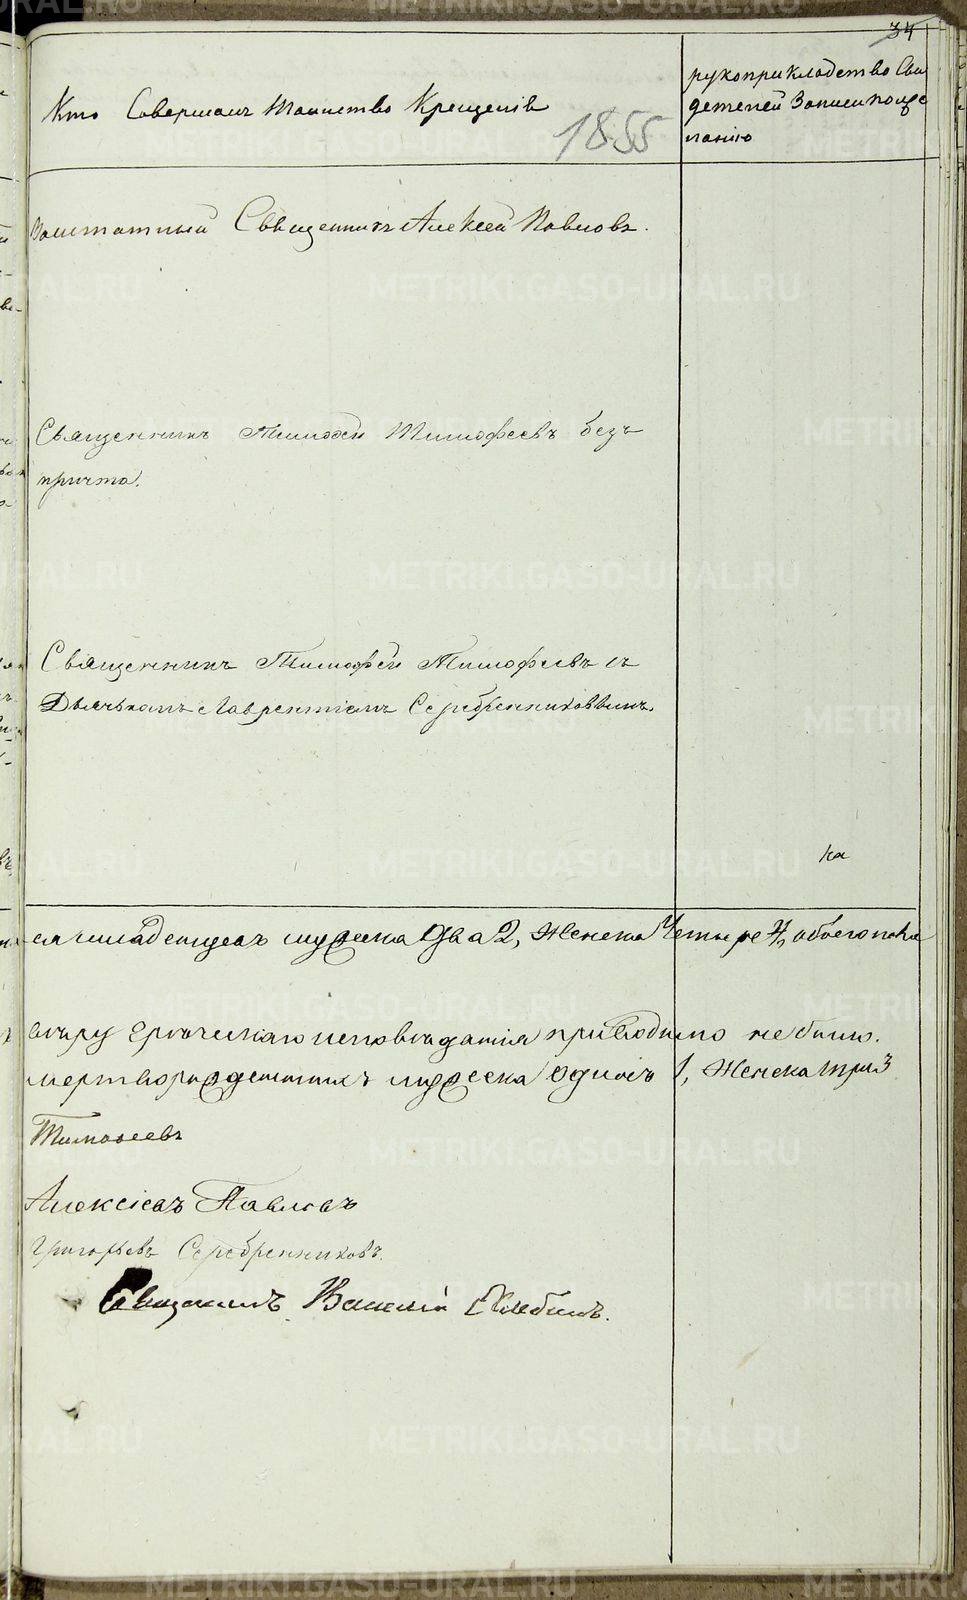 34
Кто Совершалъ Таинство Крещенія
1855
рукоприкладство Сви
детелей Записи по же
ланію
Заштатный Священникъ Алексей Павловъ.
Священникъ Тимофей Тимофеевъ безъ
причта.
Священникъ Тимофей Тимофеевъ съ
Дьячькомъ Лаврентіемъ Серебренниковымъ.
ка
младенцевъ мужеска Два 2, женска Четыре 4, обоего пола
веру Греческаго исповеданія приводимо не было.
мертворожденныхъ мужеска Одинъ 1, Женска три 3
Тимофеевъ
Алексіевъ Павловъ
Григорьевъ Серебренниковъ.
Священникъ Василій
METRIKI.GASO-URAL.RU